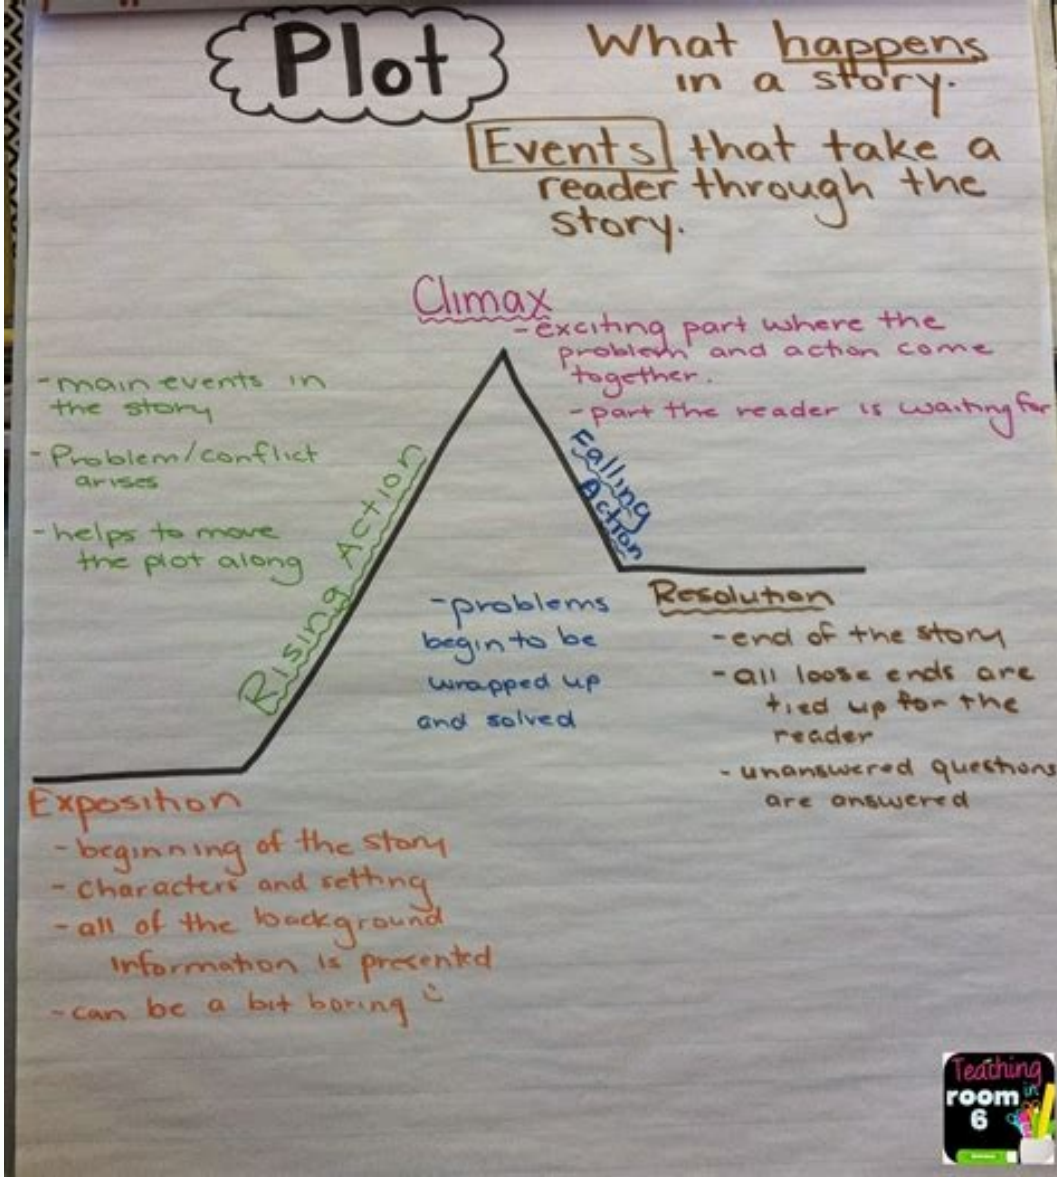 Plot
What happens
in a story.
Events that take a
reader through the
story.
Climax
-exciting part where the
problem and action come
together.
-part the reader is waiting for
-main events in
the story
-Problem/conflict
arises
-helps to move
the plot along
Rising Action
Falling
Action
-problems
begin to be
wrapped up
and solved
Resolution
-end of the story
-all loose ends are
tied up for the
reader
-unanswered questions
are answered
Exposition
-beginning of the story
-characters and setting
-all of the background
information is presented
-can be a bit boring
Teaching
in
room
6